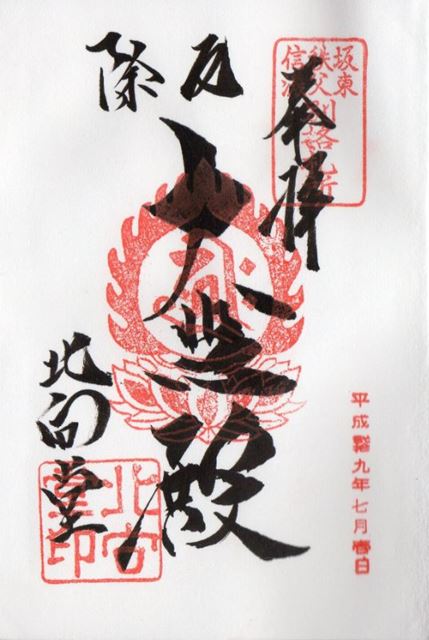 坂東
秩父
信濃
別格札所
奉拝
厄除
大悲殿
北向堂
北向
堂印
九年七月